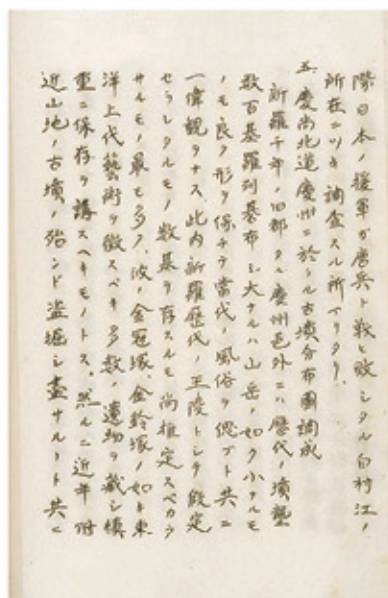 際日本ノ援軍ガ唐兵ト戦ヒ敗レタル白村江ノ
所在ニツキ調査スル所アリタリ、
五、慶尚北道慶州ニ於ケル古墳分布圖調成
新羅千年ノ旧都タル慶州邑外ニハ歴代ノ墳塋
数百基羅列碁布シ大ナルハ山岳ノ如ク小ナルモ
ノモ良ク形ヲ保チテ當代ノ風俗ヲ偲ブト共ニ
一偉観ヲナス、此内新羅歴代ノ王陵トシテ假定
セラレタルモノ数基ヲ存スルモ尚推定スベカラ
サルモノ最モ多ク、彼ノ金冠塚、金鈴塚ノ如ト東
洋上代藝術ヲ徴スベキ多数ノ遺物ヲ蔵シ慎
重ニ保存ヲ講スヘキモノトス、然ルニ近年附
近山地ノ古墳ノ殆ンド盗掘シ盡サルヽト共ニ